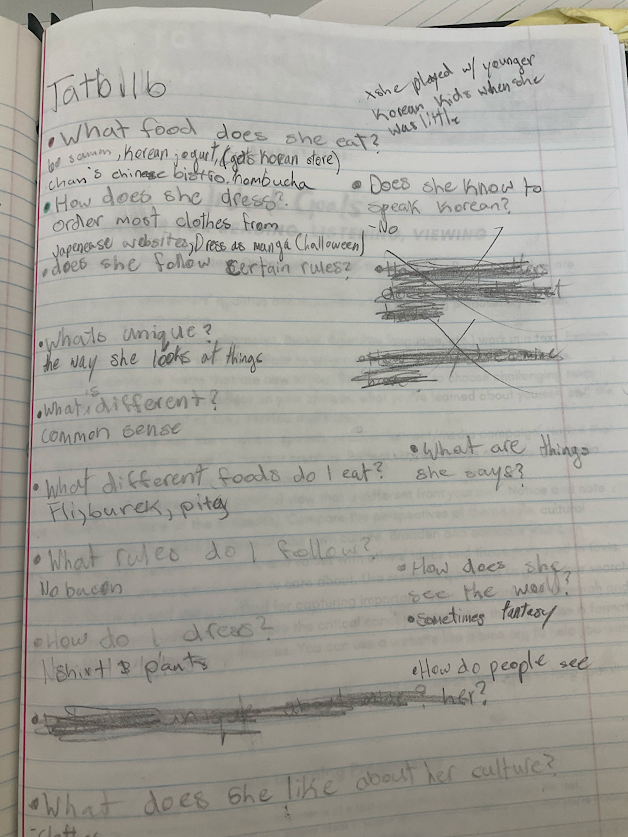 Jatbllb
*she played w/ younger
Korean kids when she
was little
• What food does she eat?
, Korean yogurt, (gets korean store)
chan's chinese bistro, kombucha
• How does she dress?
order most clothes from
Japenease websites, Dress as manga (halloween)
• does she follow certain rules?
• Does she know to
speak Korean?
- No
• Whats unique?
the way she looks at things
• What is different?
common sense
• What different foods do I eat?
Fli, burek, pita
• What are things
she says?
• What rules do I follow?
No bacon
• How does she
see the world?
• Sometimes fantasy
• How do I dress?
shirt & pants
• How do people see
her?
• What does she like about her culture?